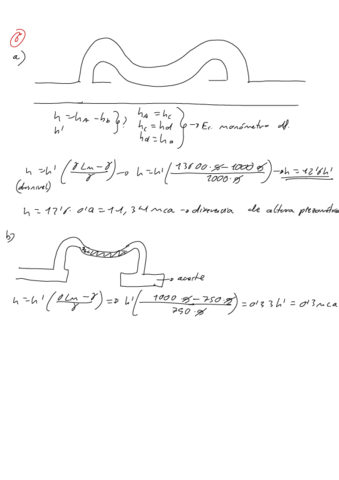 8
a)
h = hA - hB
h'
} ¿?
hA = hC
hC = hd
hd = hB
} → Ec. manómetro dif.
h = h' (γLm - γ / γ) → h = h' (13600·g - 1000·g / 1000·g) → h = 12'6h'
(desnivel)
h = 12'6 · 0'9 = 11,34 mca → diferencia de altura piezométrica
b)
→ aceite
h = h' (γLm - γ / γ) => h' (1000·g - 750·g / 750·g) = 0'33h' = 0'3 mca